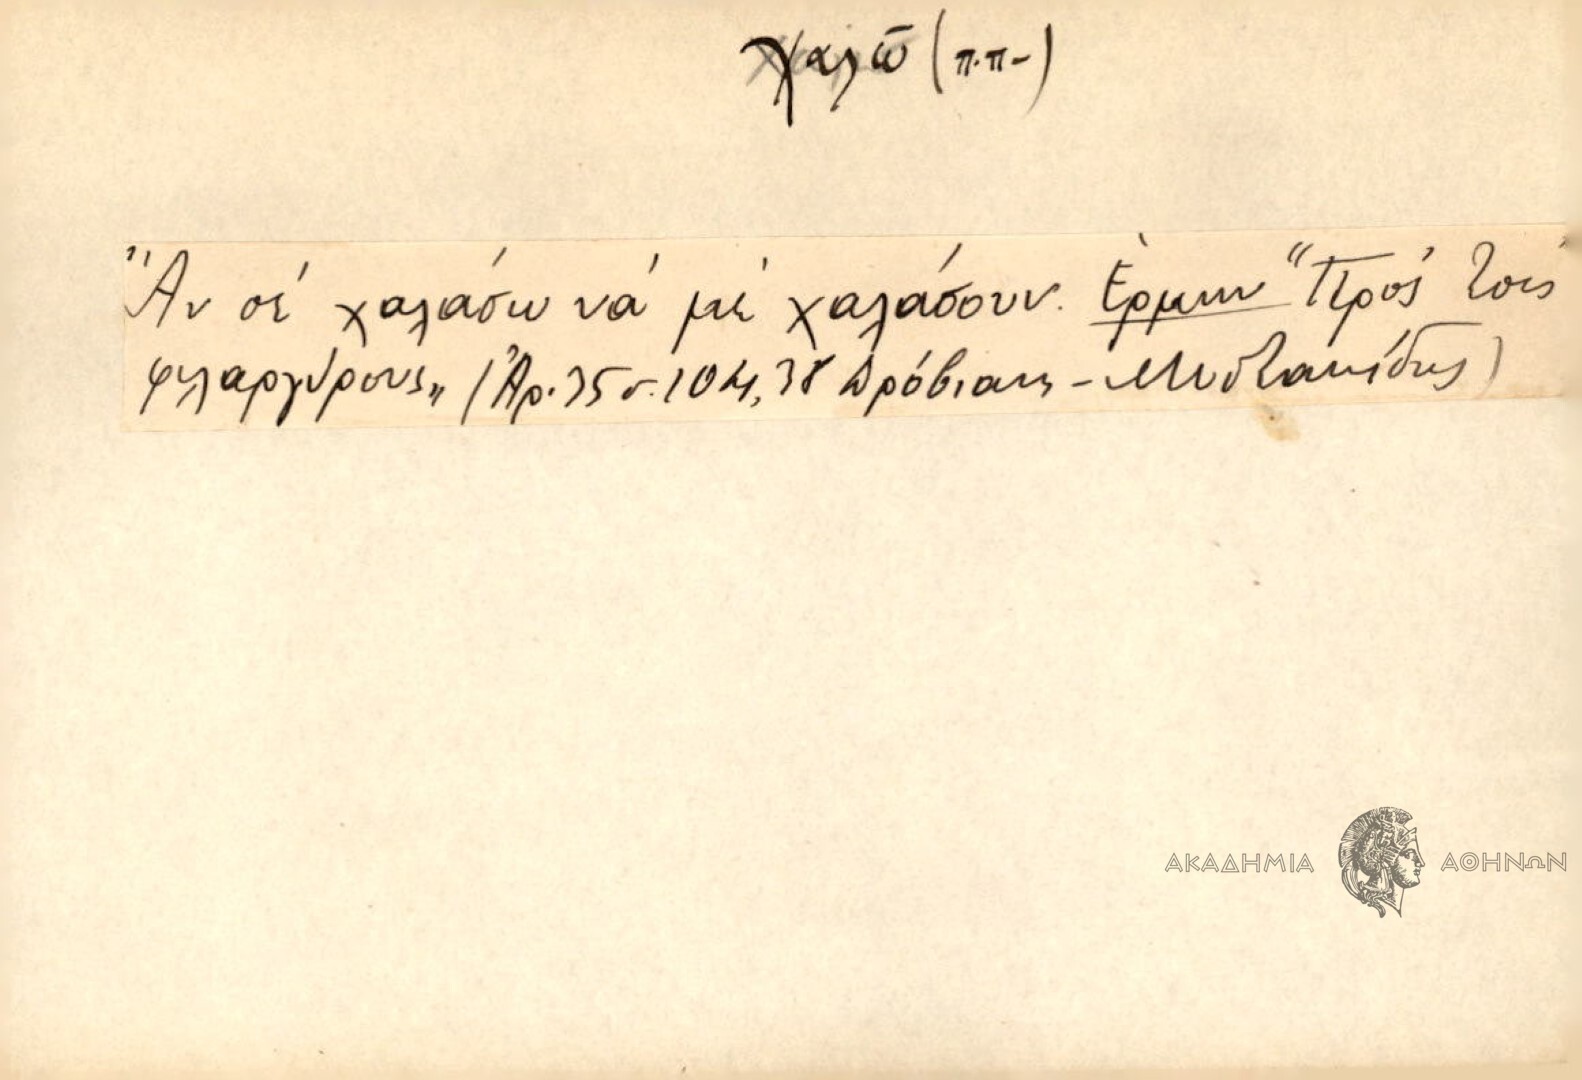 χαλῶ (π.π-)
Ἄν σέ χαλάσω νά μέ χαλάσουν. Ἑρμην "Πρός τούς
φιλαργύρους„ (Ἀρ. 75 σ. 104, 38 Δρόβιανη - Μυστακίδης)
ΑΚΑΔΗΜΙΑ ΑΘΗΝΩΝ